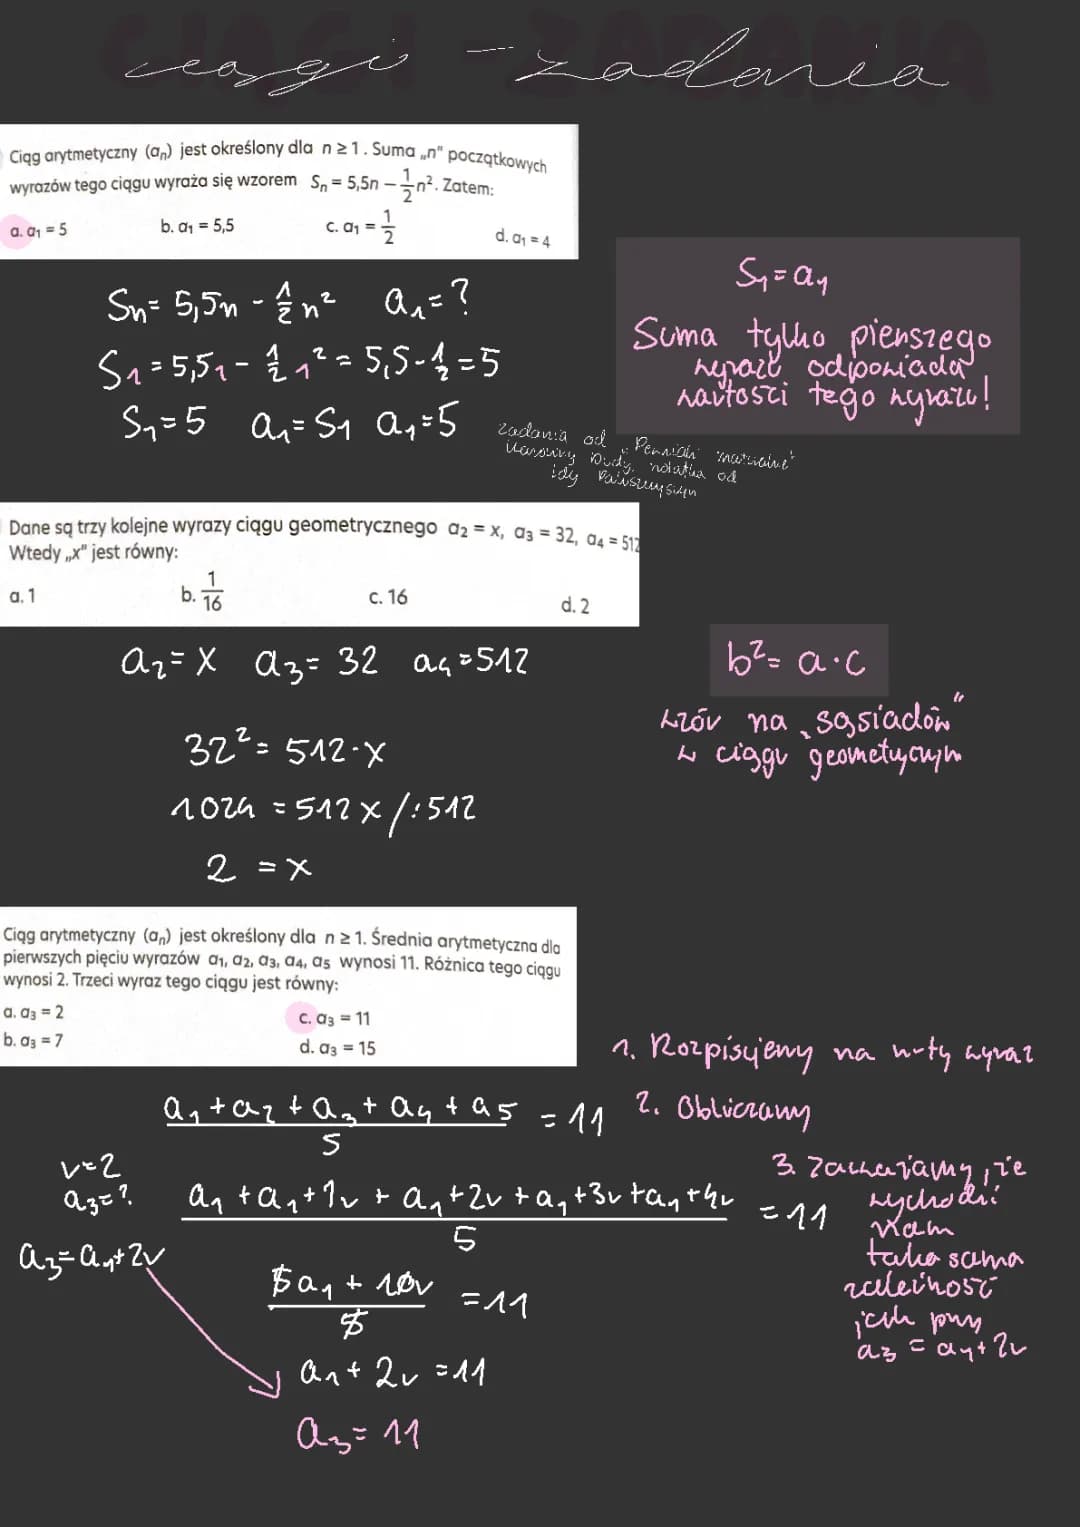 ciągi - zadania
Ciąg arytmetyczny (aₙ) jest określony dla n ≥ 1. Suma „n" początkowych
wyrazów tego ciągu wyraża się wzorem Sₙ = 5,5n − 1/2 n². Zatem:
a. a₁ = 5 b. a₁ = 5,5 c. a₁ = 1/2 d. a₁ = 4
Sn = 5,5n - 1/2 n² a₁ = ?
S₁ = 5,5₁ - 1/2 1² = 5,5 - 1/2 = 5
S₁ = 5 a₁ = S₁ a₁ = 5
S₁ = a₁
Suma tylko pierwszego
wyrazu odpowiada
wartości tego wyrazu!
zadania od „Pewniaki maturalne"
Dudy. notatka od
idy
Dane są trzy kolejne wyrazy ciągu geometrycznego a₂ = x, a₃ = 32, a₄ = 512
Wtedy „x" jest równy:
a. 1 b. 1/16 c. 16 d. 2
a₂ = x a₃ = 32 a₄ = 512
32² = 512·x
1024 = 512x /:512
2 = x
b² = a·c
wzór na „sąsiadów"
w ciągu geometycznym
Ciąg arytmetyczny (aₙ) jest określony dla n ≥ 1. Średnia arytmetyczna dla
pierwszych pięciu wyrazów a₁, a₂, a₃, a₄, a₅ wynosi 11. Różnica tego ciągu
wynosi 2. Trzeci wyraz tego ciągu jest równy:
a. a₃ = 2 c. a₃ = 11
b. a₃ = 7 d. a₃ = 15
1. Rozpisujemy na n-ty wyraz
2. Obliczamy
3. Zauważamy, że
wychodzi
nam
taka sama
zależność
jak przy
a₃ = a₁+2r
(a₁ + a₂ + a₃ + a₄ + a₅)/5 = 11
r=2
a₃=?
a₃=a₁+2r
(a₁ + a₁+1r + a₁+2r + a₁+3r + a₁+4r)/5 = 11
(5a₁ + 10r)/5 = 11
a₁ + 2r = 11
a₃ = 11